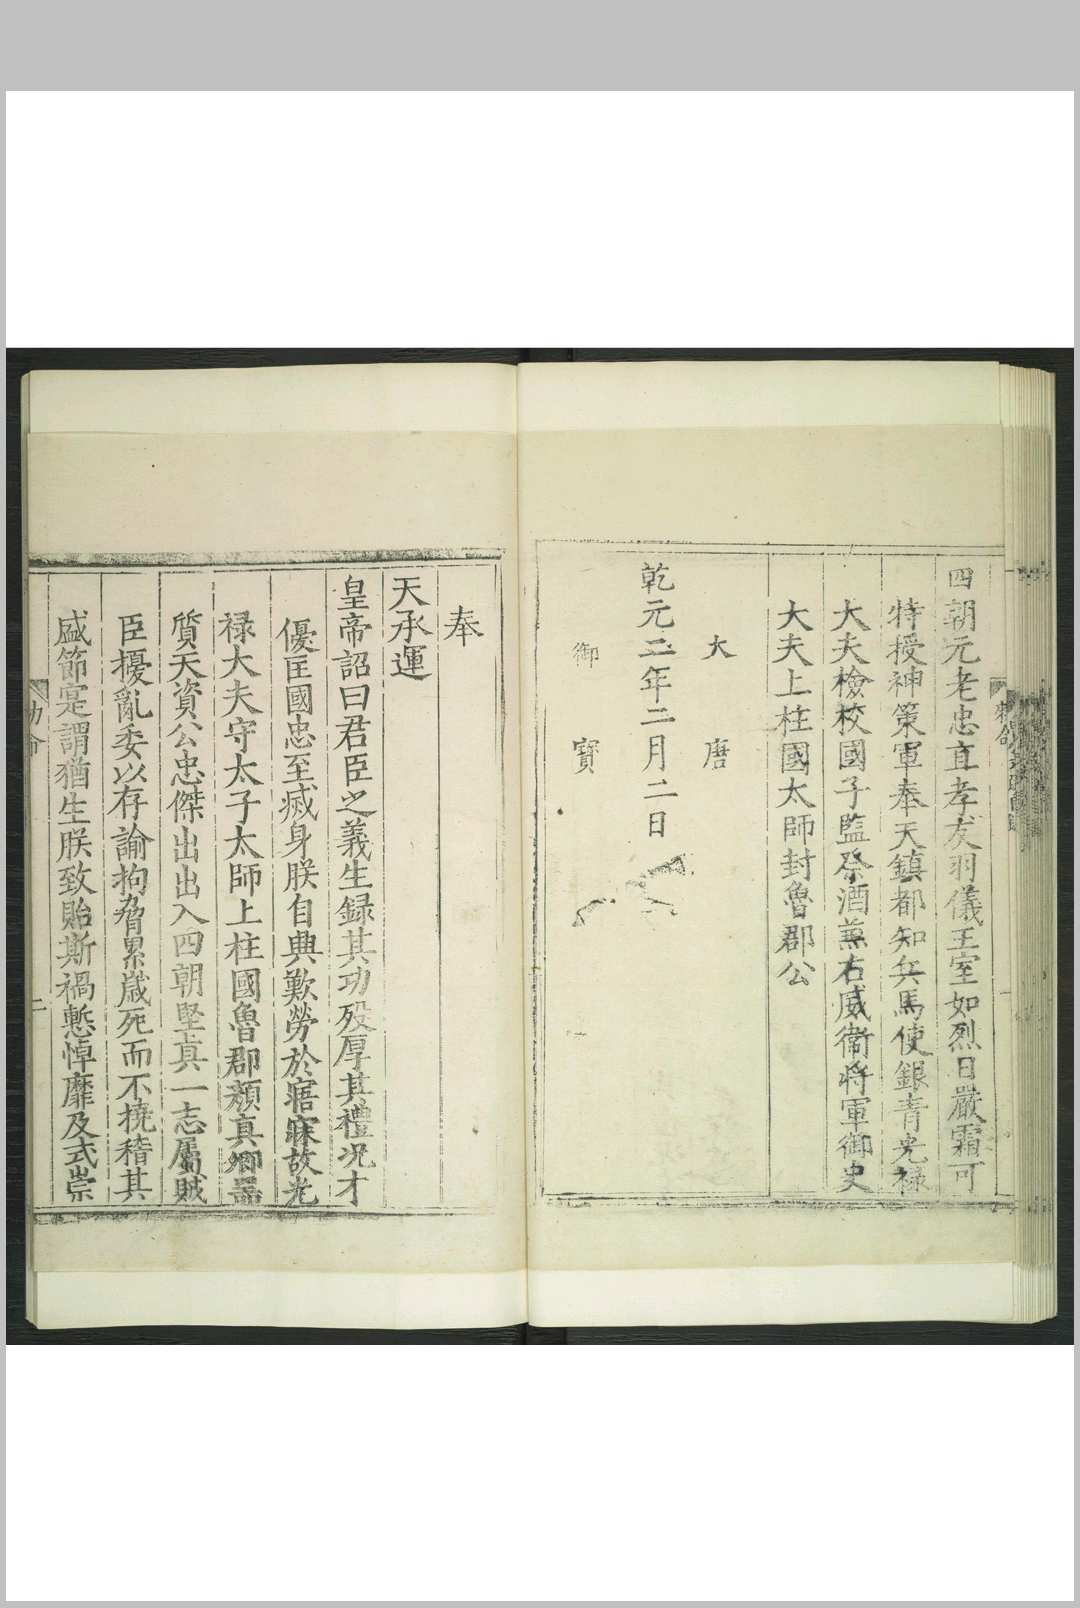 四朝元老忠直孝友羽儀王室如烈日嚴霜可
特授神策軍奉天鎮都知兵馬使銀青光祿
大夫檢校國子監祭酒兼右威衛將軍御史
大夫上柱國太師封魯郡公
大唐
乾元二年二月二日
御寶
奉
天承運
皇帝詔曰君臣之義生録其功殁厚其禮况才
優匡國忠至烕身朕自興歎勞於寤寐故光
禄大夫守太子太師上柱國魯郡顏真卿噐
質天資公忠傑出出入四朝堅貞一志屬賊
臣擾亂委以存諭拘脅累歲死而不撓稽其
盛節寔謂猶生朕致貽斯禍慙悼靡及式崇
二